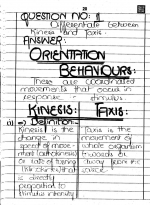 QUESTION NO: 1
Differentiate between
Kinesis and Taxis:
ANSWER:
ORIENTATION
BEHAVIOURS:
These are coordinated
movements that occur in
response to stimulus.
KINESIS: TAXIS:
(i) → Definition:-
Kinesis is the
change in
speed of move-
or rate of turning
is directly
proportional to
stimulus intensity
Taxis is the
movement of
whole organism
towards or
away from the